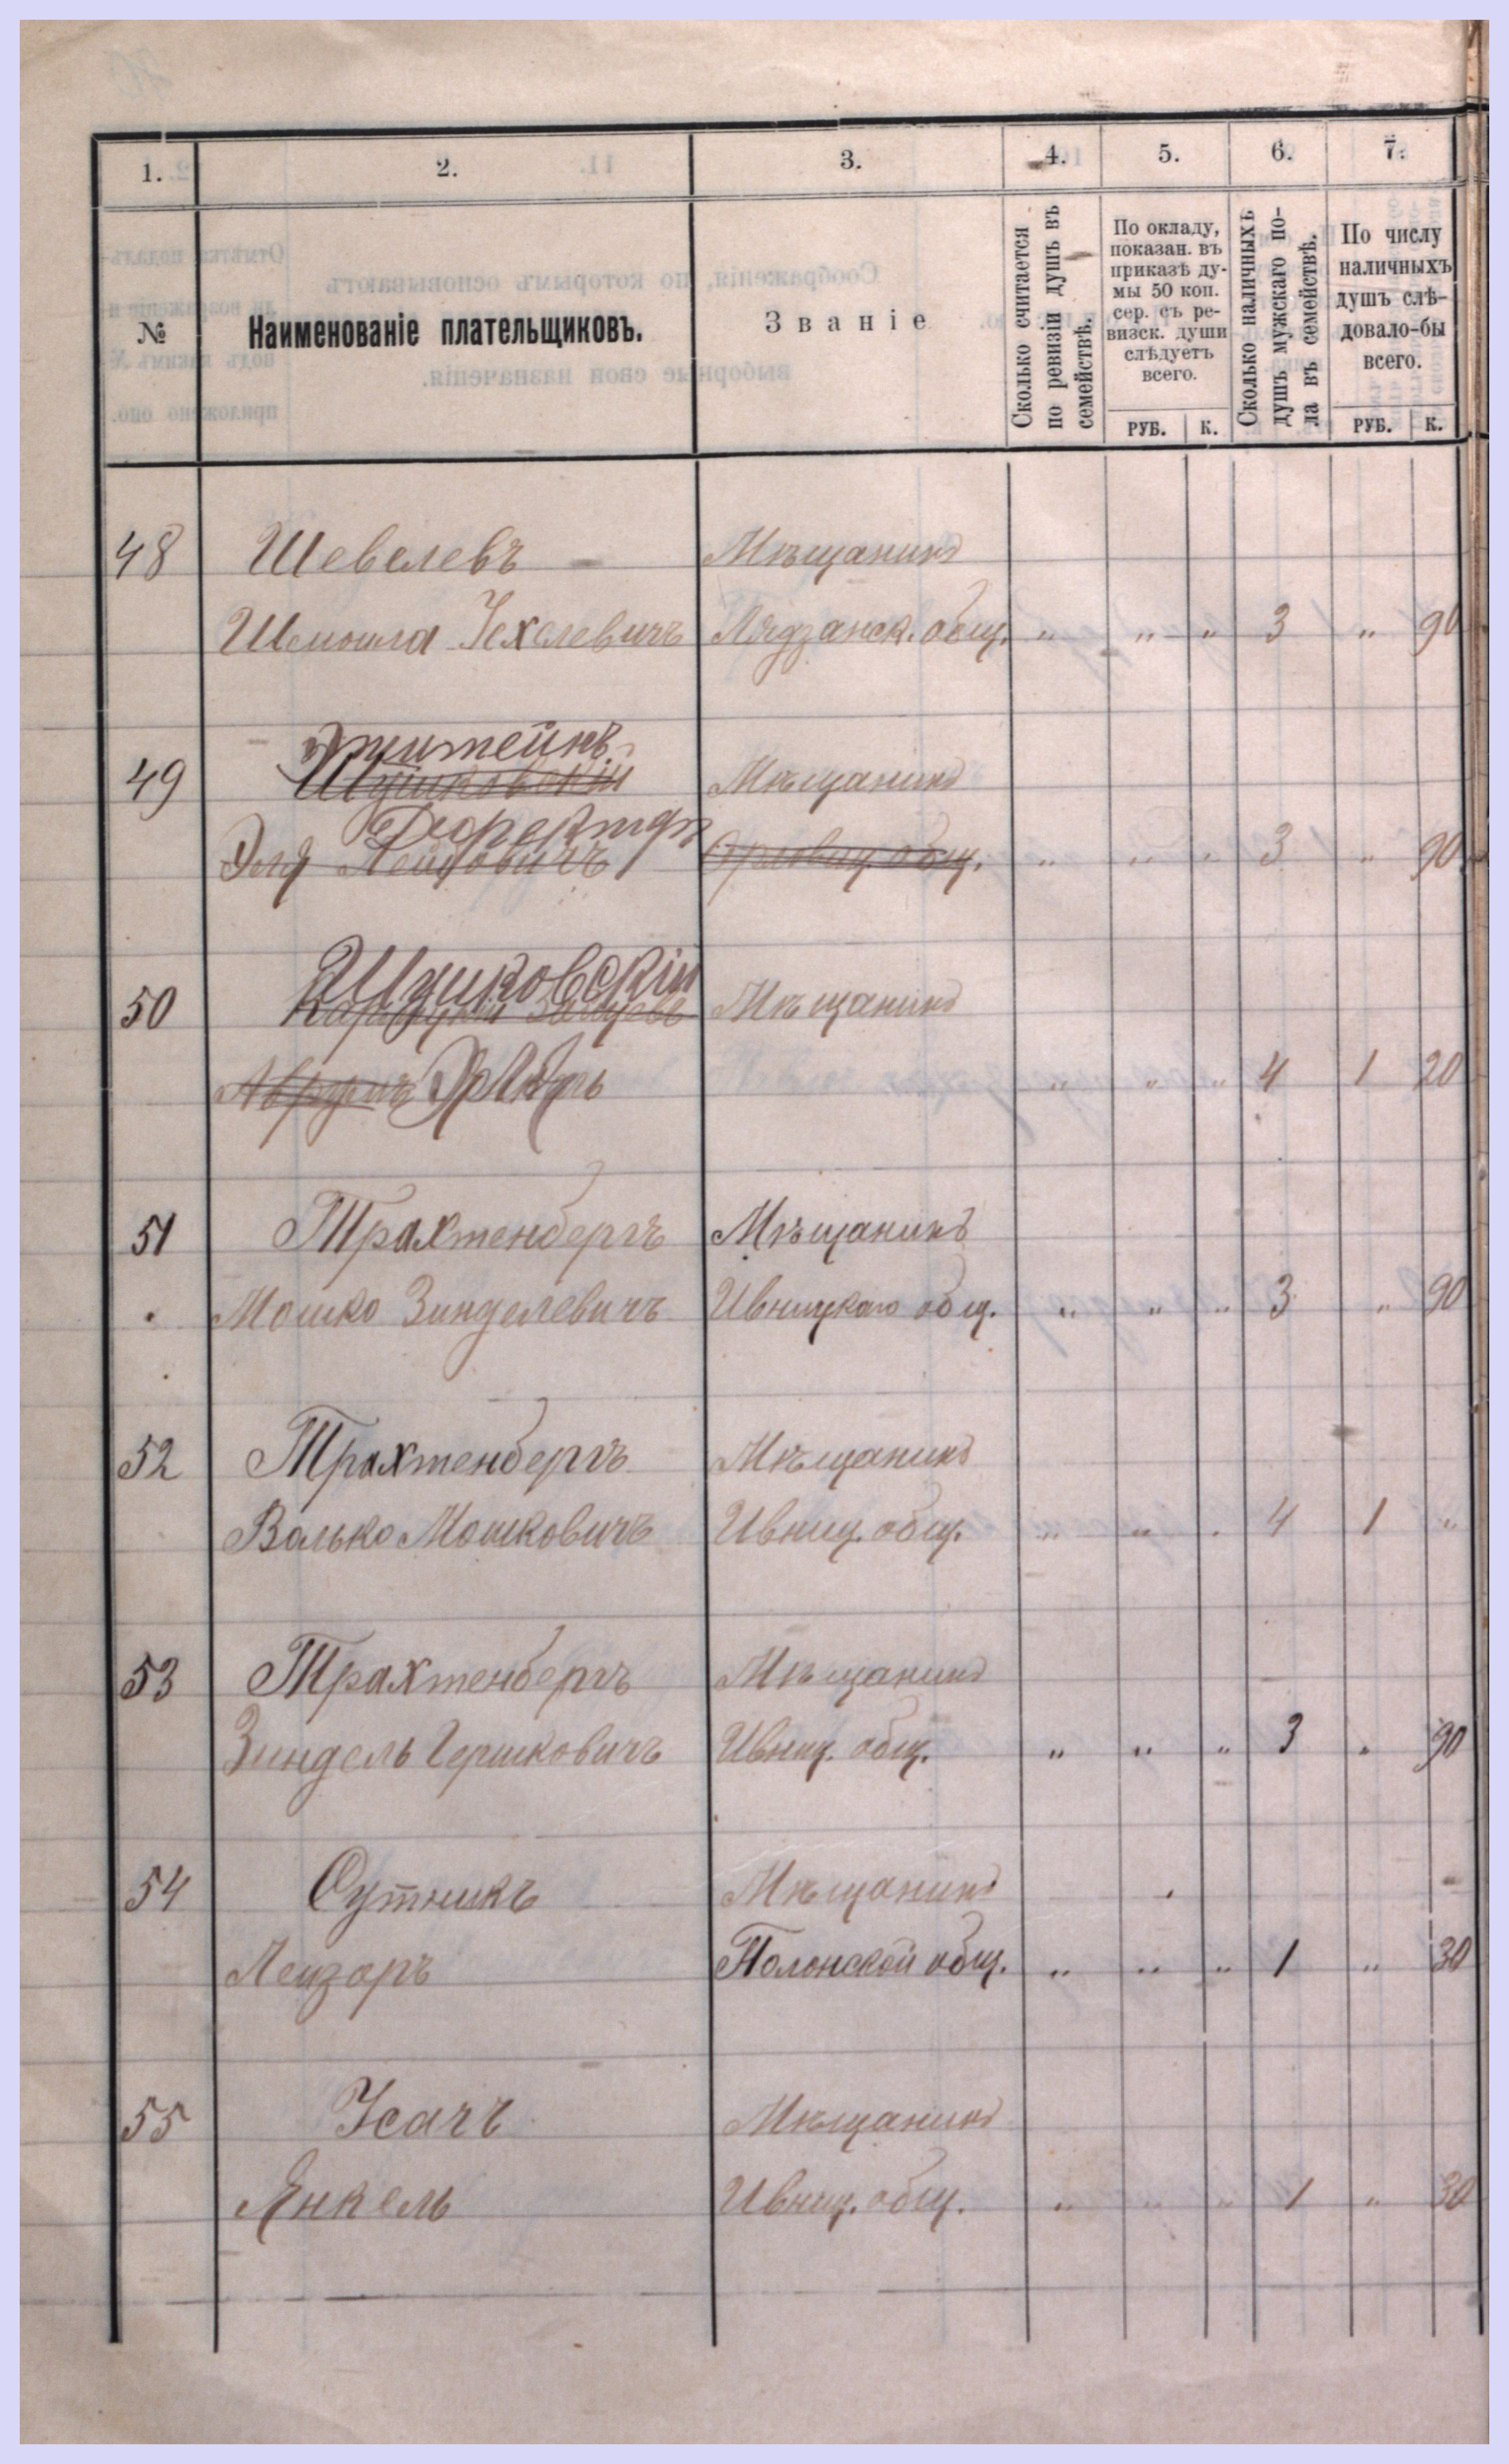 1. 2. 3. 4. 5. 6. 7.
№
Наименованіе плательщиковъ.
Званіе
Сколько считается по ревизіи душъ въ семействѣ.
По окладу,
показан. въ
приказѣ ду-
мы 50 коп.
сер. съ ре-
визск. души
слѣдуетъ
всего.
РУБ. К.
Сколько наличныхъ душъ мужскаго по-
ла въ семействѣ.
По числу
наличныхъ
душъ слѣ-
довало-бы
всего.
РУБ. К.
48 Шевелевъ Мѣщанинъ
Шмошла Іехелевичъ Лядзанск. общ. " " " 3 " 90
49 Мѣщанинъ
" " " 3 " 90
50 Шушковскій Мѣщанинъ
" " " 4 1 20
51 Трахтенбергъ Мѣщанинъ
Мошко Зинделевичъ Ивницкаго общ. " " " 3 " 90
52 Трахтенбергъ Мѣщанинъ
Волько Мошковичъ Ивниц. общ. " " " 4 1 "
53 Трахтенбергъ Мѣщанинъ
Зиндель Гершковичъ Ивниц. общ. " " " 3 " 90
54 Сутникъ Мѣщанинъ
Лейзоръ Полонской общ. " " " 1 " 30
55 Усачъ Мѣщанинъ
Янкель Ивниц. общ. " " " 1 " 30